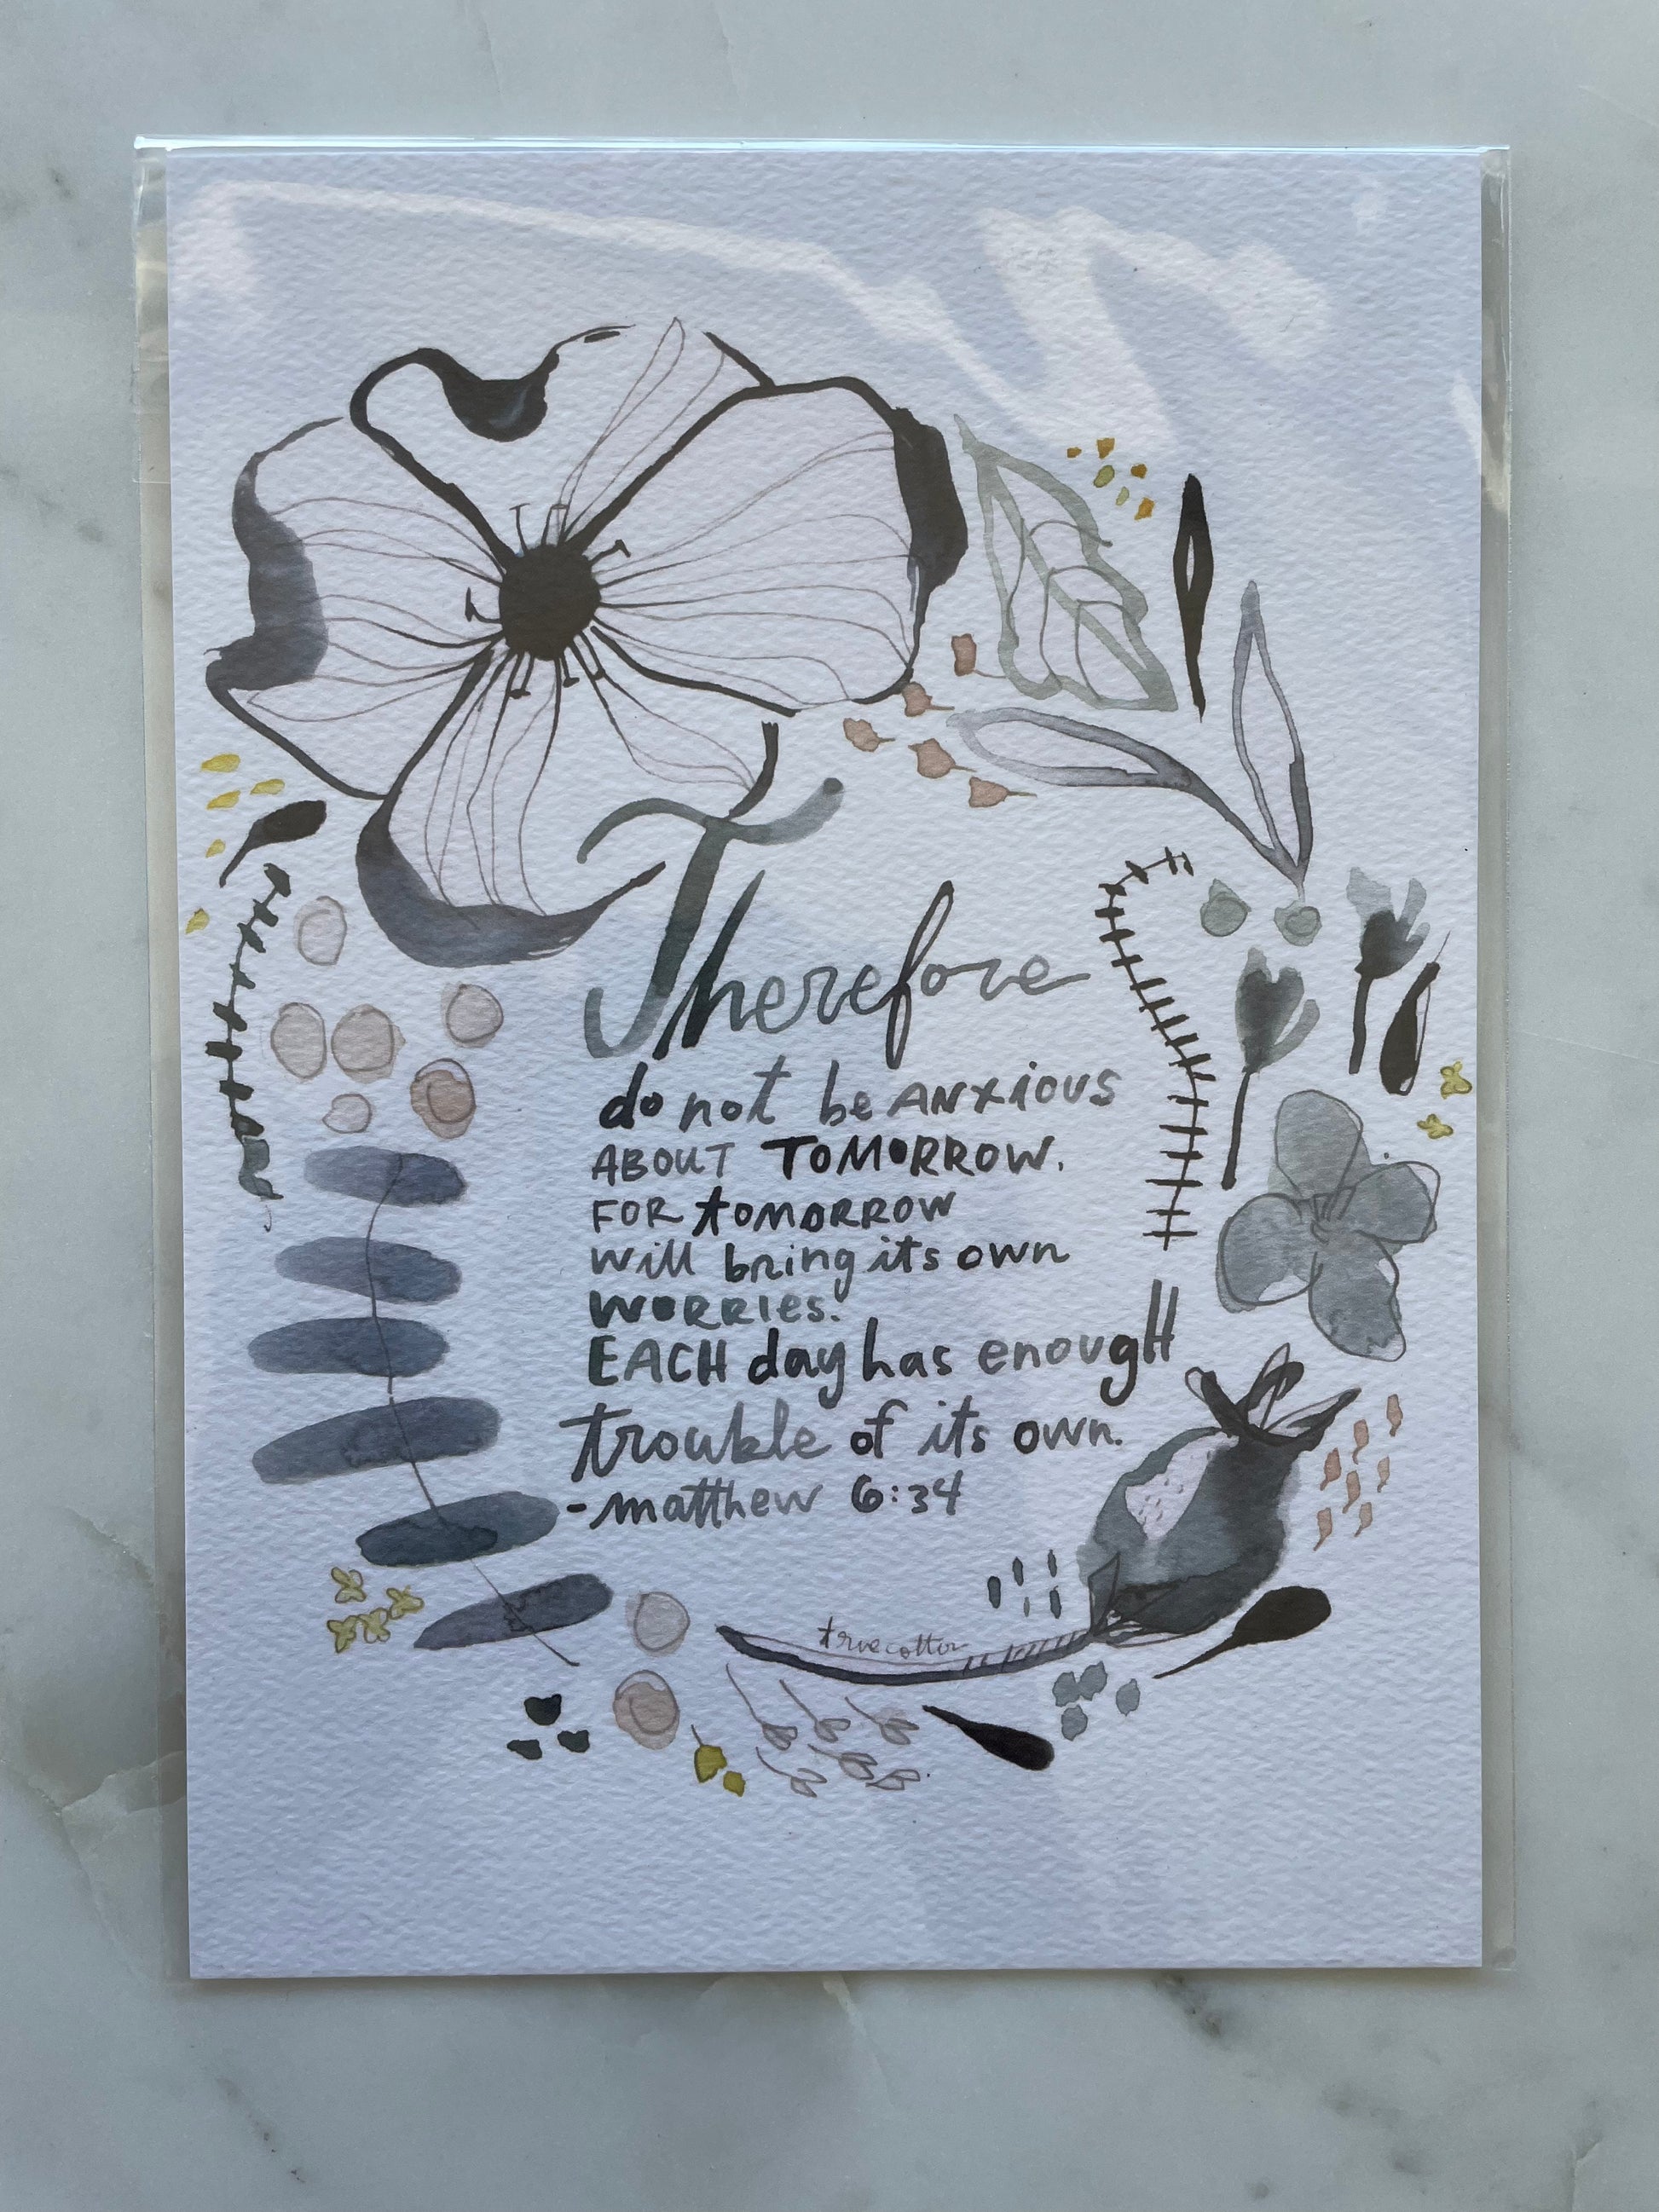 Therefore
do not be ANXIOUS
ABOUT TOMORROW.
FOR tOMORROW
will bring its own
WORRIes.
EACH day has enougH
trouble of its own.
-matthew 6:34
truecotton